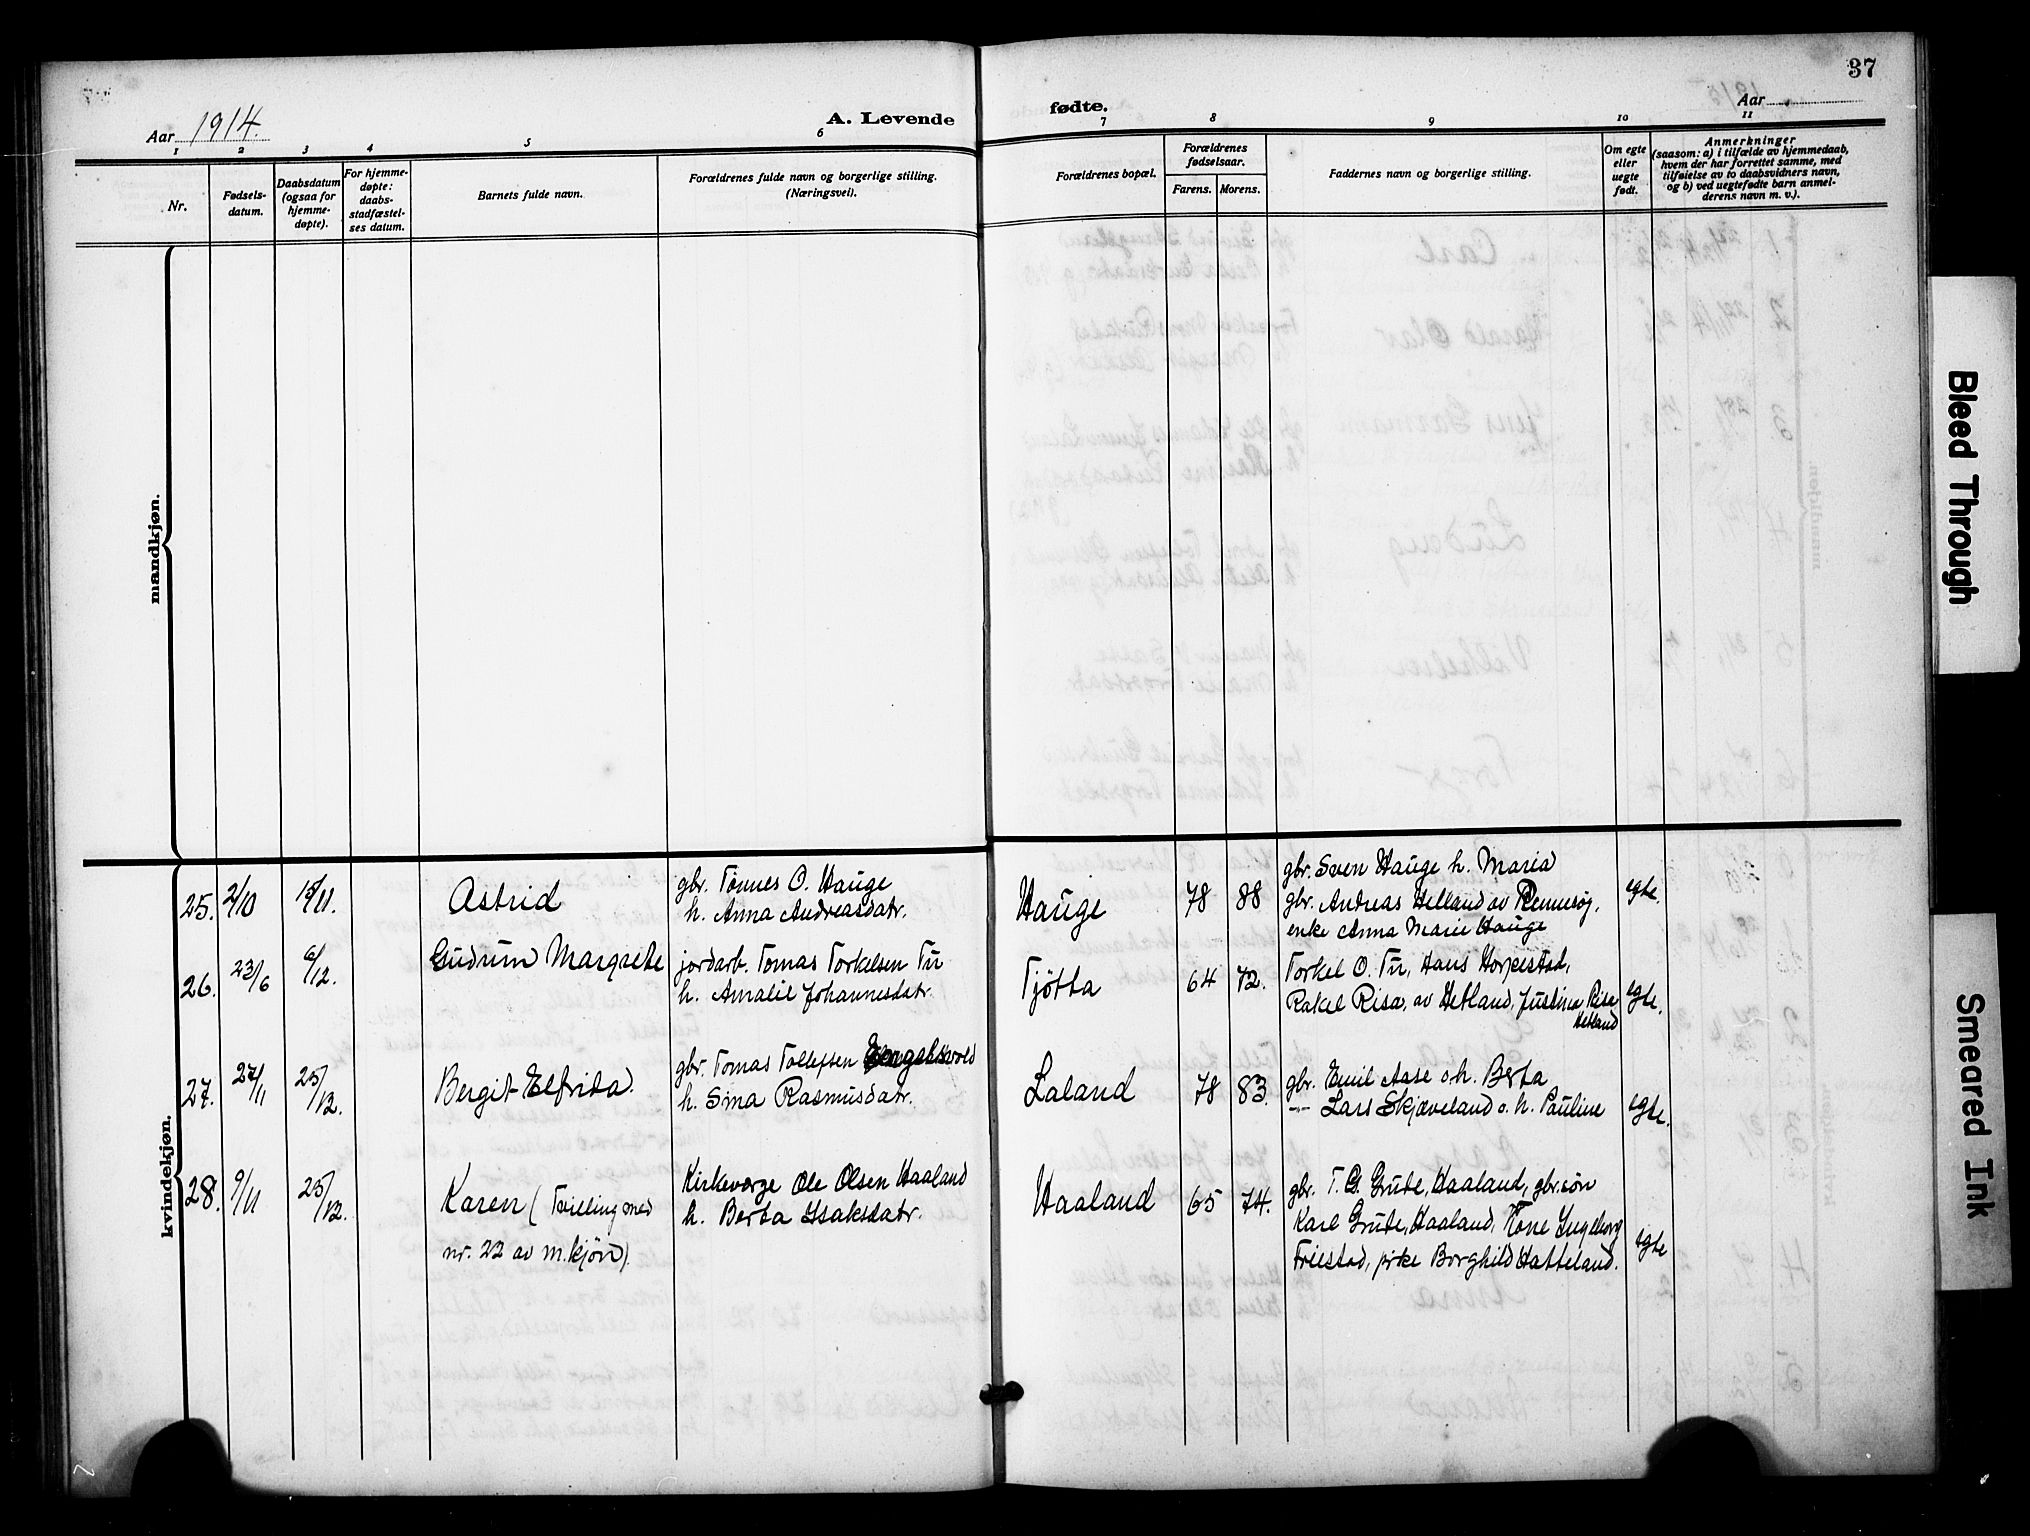 37
Aar 1914.
A. Levende
fødte.
Aar
1 2 3 4 5 6 7 8 9 10 11
Nr.
Fødsels-
datum.
Daabsdatum
(ogsaa for
hjemme-
døpte).
For hjemme-
døpte:
daabs-
stadfæstel-
ses datum.
Barnets fulde navn.
Forældrenes fulde navn og borgerlige stilling.
(Næringsvei).
Forældrenes bopæl.
Forældrenes
fødselsaar.
Farens. Morens.
Faddernes navn og borgerlige stilling.
Om egte
eller
uegte
født.
Anmerkninger
(saasom: a) i tilfælde av hjemmedaab,
hvem der har forrettet samme, med
tilføielse av to daabsvidners navn,
og b) ved uegtefødte barn anmel-
derens navn m. v.).
mandkjøn.
kvindekjøn.
25. 2/10 15/11. Astrid
gbr. Tønnes O. Hauge
h. Anna Andreasdatr.
Hauge 78 88
gbr. Sven Hauge h. Maria
gbr. Andreas Helland av Rennesøy,
enke Anna Marie Hauge
egte.
26. 23/6 6/12. Gudrun Margrete
jordarb. Tomas Torkelsen Tu
h. Amalie Johannesdatr.
Tjøtta 64 72.
Torkel O. Tu, Hans Horpestad,
Rakel Risa, av Hetland, Justina Risa
Hetland
egte.
27. 27/11 25/12. Bergit Elfrida
gbr. Tomas Tollefsen Engelsvold
h. Sina Rasmusdatr.
Laland 78 83.
gbr. Emil Aase o.h. Berta
— Lars Skjæveland o. h. Pauline
egte.
28. 9/11 25/12. Karen (Tvilling med
nr. 22 av m.kjøn).
Kirkeværge Ole Olsen Haaland
h. Berta Isaksdatr.
Haaland 65 74.
gbr. T. G. Grude, Haaland, gbr.søn
Karl Grude, Haaland, Kone Ingeborg
Friestad, pike Borghild Hatteland.
egte
Bleed Through
Smeared Ink